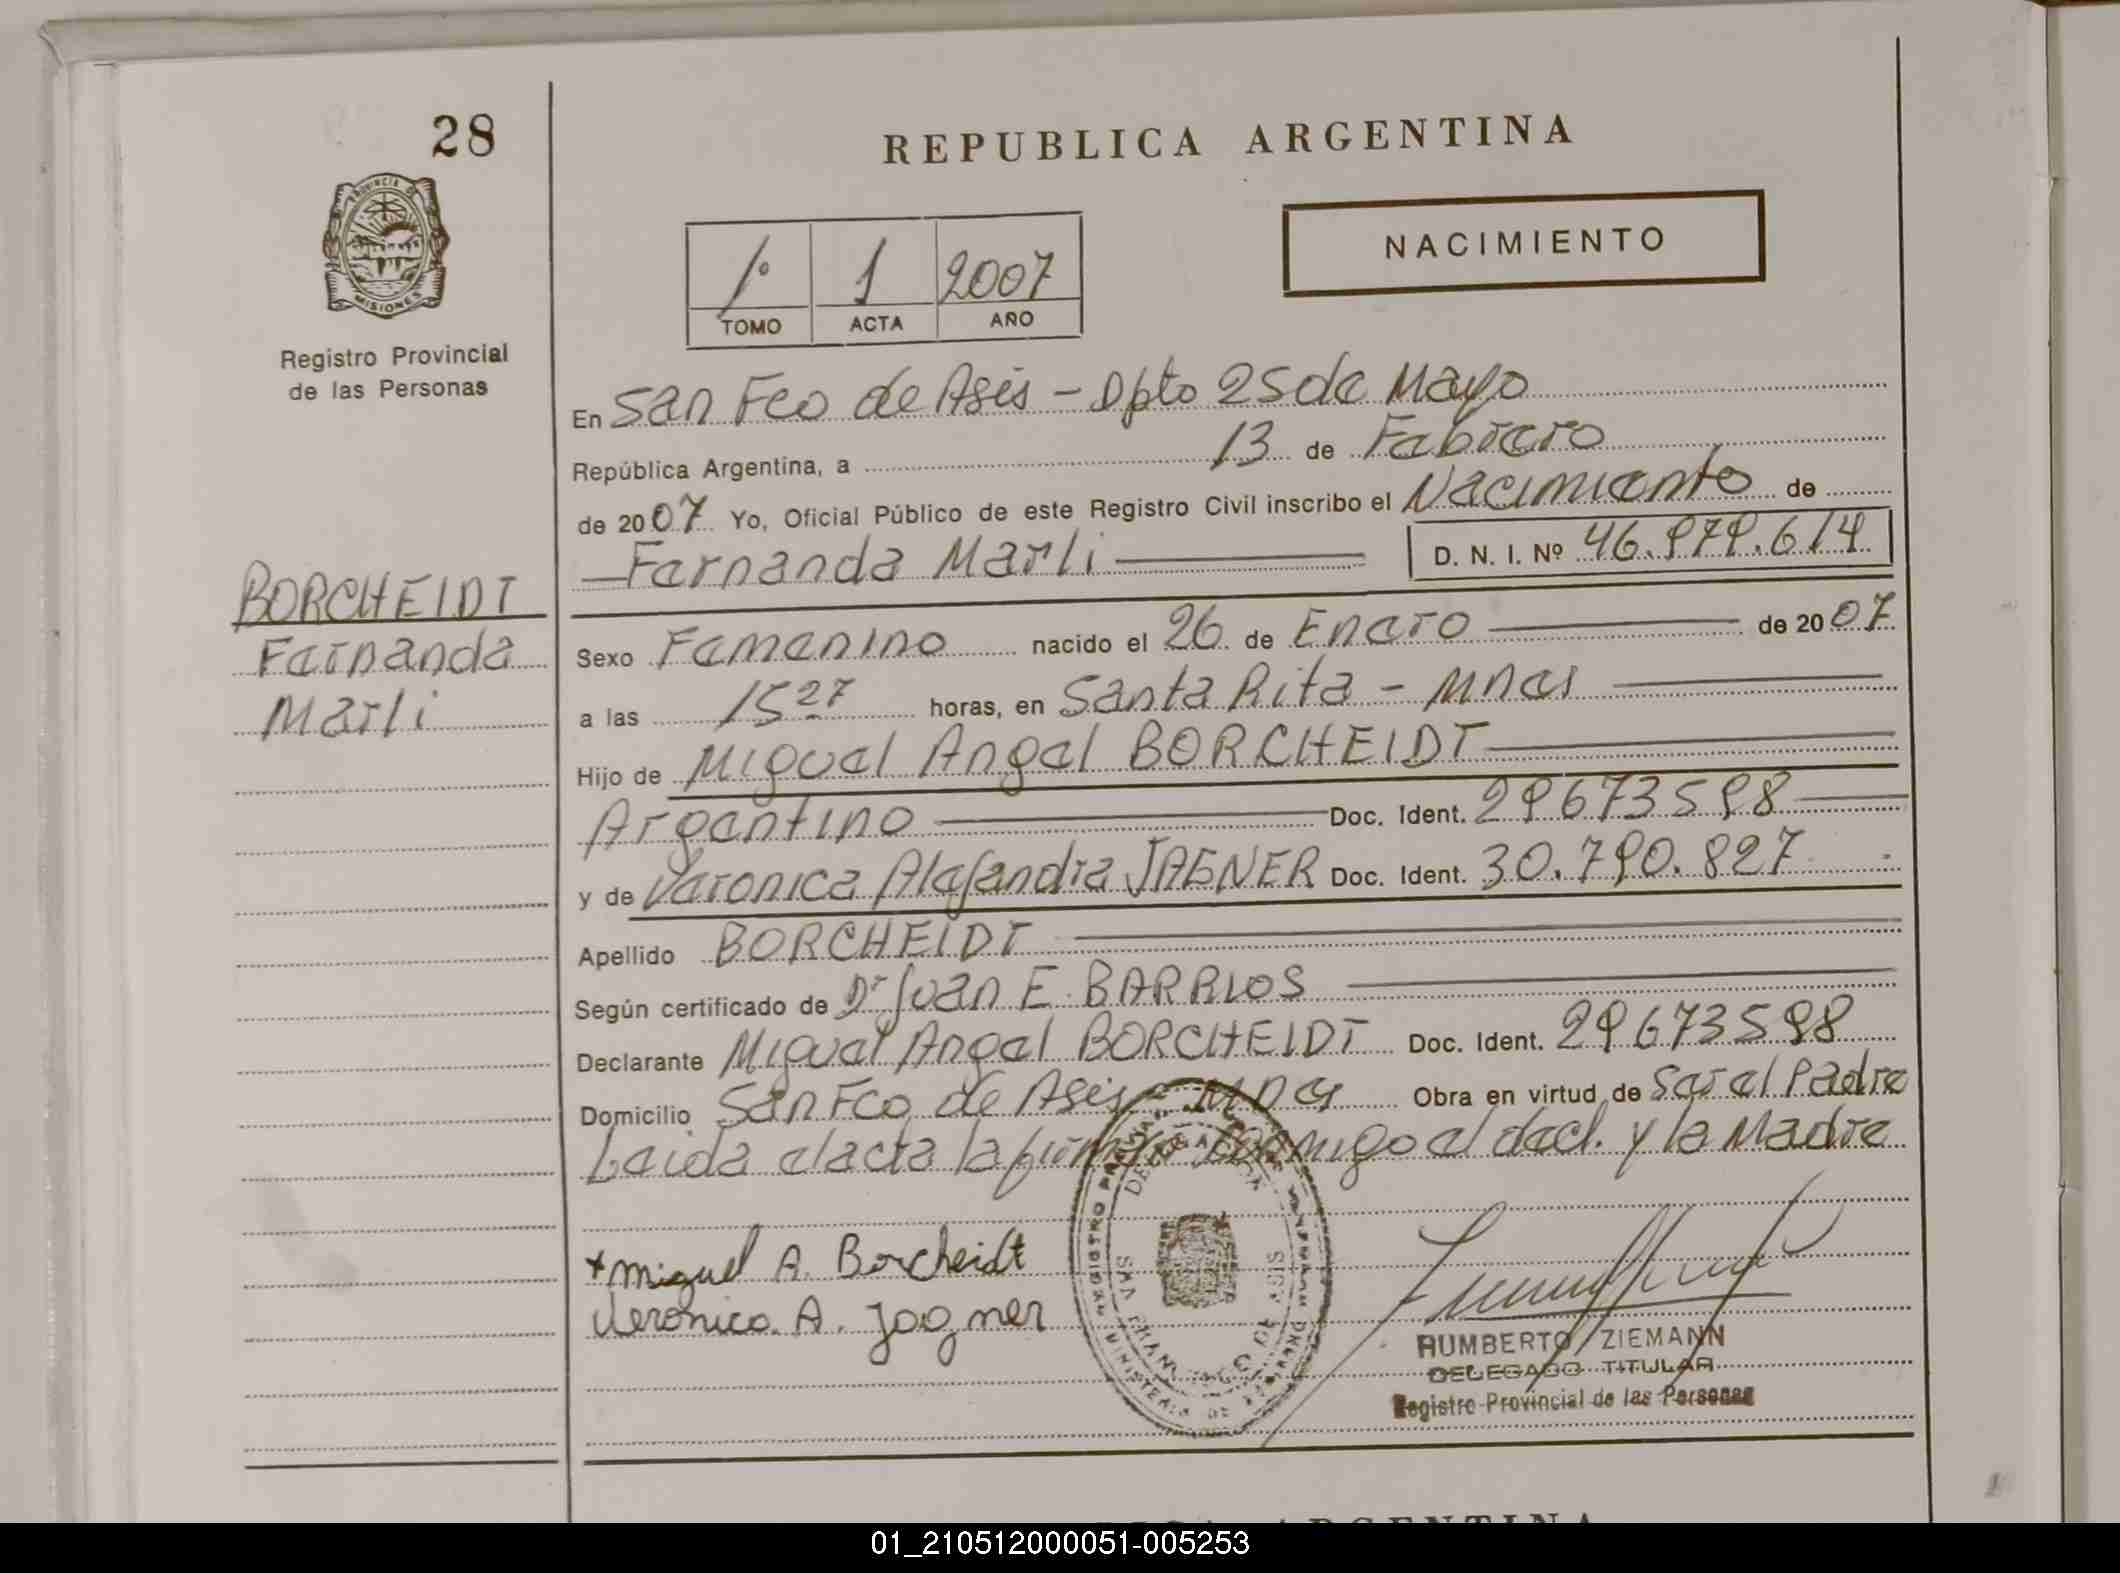 28
REPUBLICA ARGENTINA
PROVINCIA D MISIONES
Registro Provincial
de las Personas
1º 1 2007
TOMO ACTA AÑO
NACIMIENTO
En San Fco de Asis - Dpto 25 de Mayo
República Argentina, a 13 de Febrero
de 2007 Yo, Oficial Público de este Registro Civil inscribo el Nacimiento de
Fernanda Marli D. N. I. Nº 46.979.614
BORCHEIDT
Fernanda
Marli
Sexo Femenino nacido el 26 de Enero de 2007
a las 15 27 horas, en Santa Rita - Mnes
Hijo de Miguel Angel BORCHEIDT
Argentino Doc. Ident. 29673598
y de Veronica Alejandra JAGNER Doc. Ident. 30.790.827
Apellido BORCHEIDT
Según certificado de Dr Juan E. BARRIOS
Declarante Miguel Angel BORCHEIDT Doc. Ident. 29673598
Domicilio San Fco de Asis - Mnes Obra en virtud de Ser el Padre
Leida el acta la firman conmigo el decl. y la Madre
Miguel A. Borcheidt
Veronica A. Jagner
DELEGACION
SAN FRANCISCO DE ASIS
HUMBERTO ZIEMANN
DELEGADO TITULAR
Registro Provincial de las Personas
01_210512000051-005253